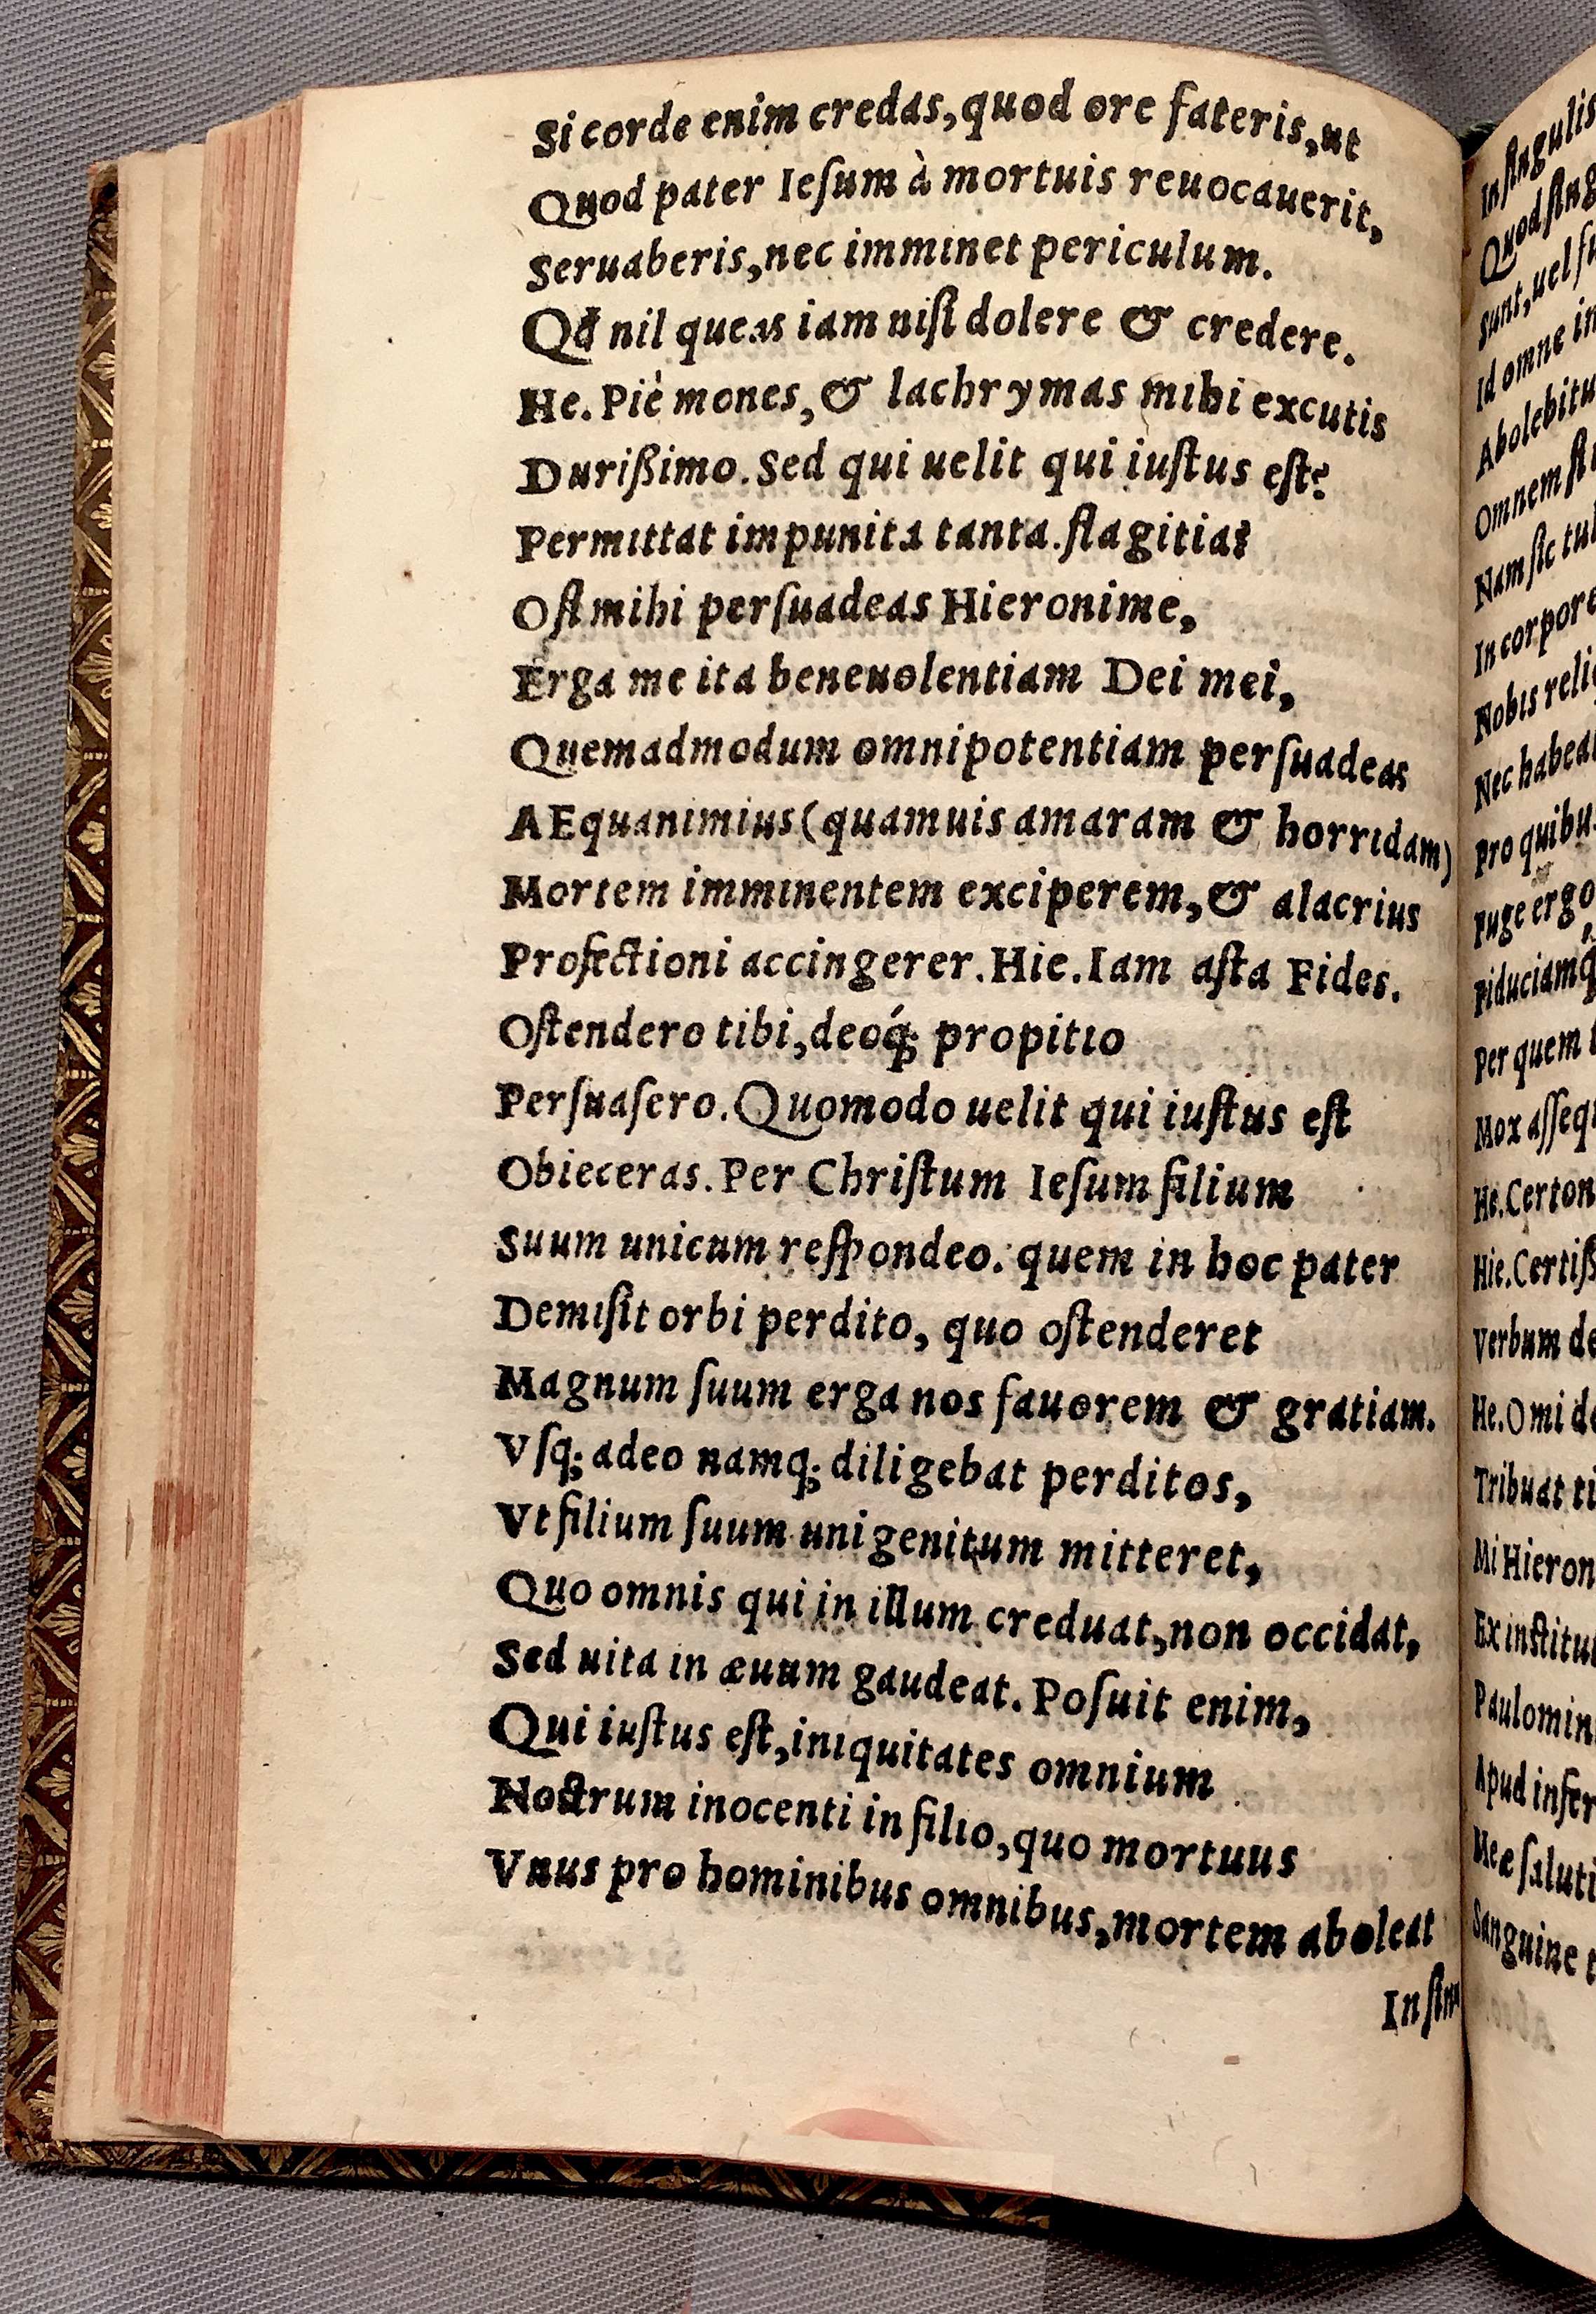 Si corde enim credas, quod ore fateris, ut
Quod pater Ieſum à mortuis reuocauerit,
Seruaberis, nec imminet periculum.
Qđ nil queas iam niſi dolere & credere.
He. Piè mones, & lachrymas mihi excutis
Durißimo. Sed qui uelit qui iuſtus eſt?
Permittat impunita tanta flagitia?
O ſi mihi perſuadeas Hieronime,
Erga me ita beneuolentiam Dei mei,
Quemadmodum omnipotentiam perſuadeas
AEquanimius (quamuis amaram & horridam)
Mortem imminentem exciperem, & alacrius
Profectioni accingerer. Hie. Iam aſta Fides.
Oſtendero tibi, deoq́; propitio
Perſuaſero. Quomodo uelit qui iuſtus eſt
Obieceras. Per Chriſtum Ieſum filium
Suum unicum reſpondeo. quem in hoc pater
Demiſit orbi perdito, quo oſtenderet
Magnum ſuum erga nos fauorem & gratiam.
Vſq; adeo namq; diligebat perditos,
Vt filium ſuum unigenitum mitteret,
Quo omnis qui in illum creduat, non occidat,
Sed uita in æuum gaudeat. Poſuit enim,
Qui iuſtus eſt, iniquitates omnium
Noſtrum inocenti in filio, quo mortuus
Vnus pro hominibus omnibus, mortem aboleat
In ſingulis
Quod
Sunt, uel
Id omne
Omnem
Nam ſic
In corpore
Nobis
Nec
Pro
Fuge ergo
Per quem
Mox
He.
Hie.
Verbum
He. O mi
Tribuat
Mi
Ex
Apud
Sanguine